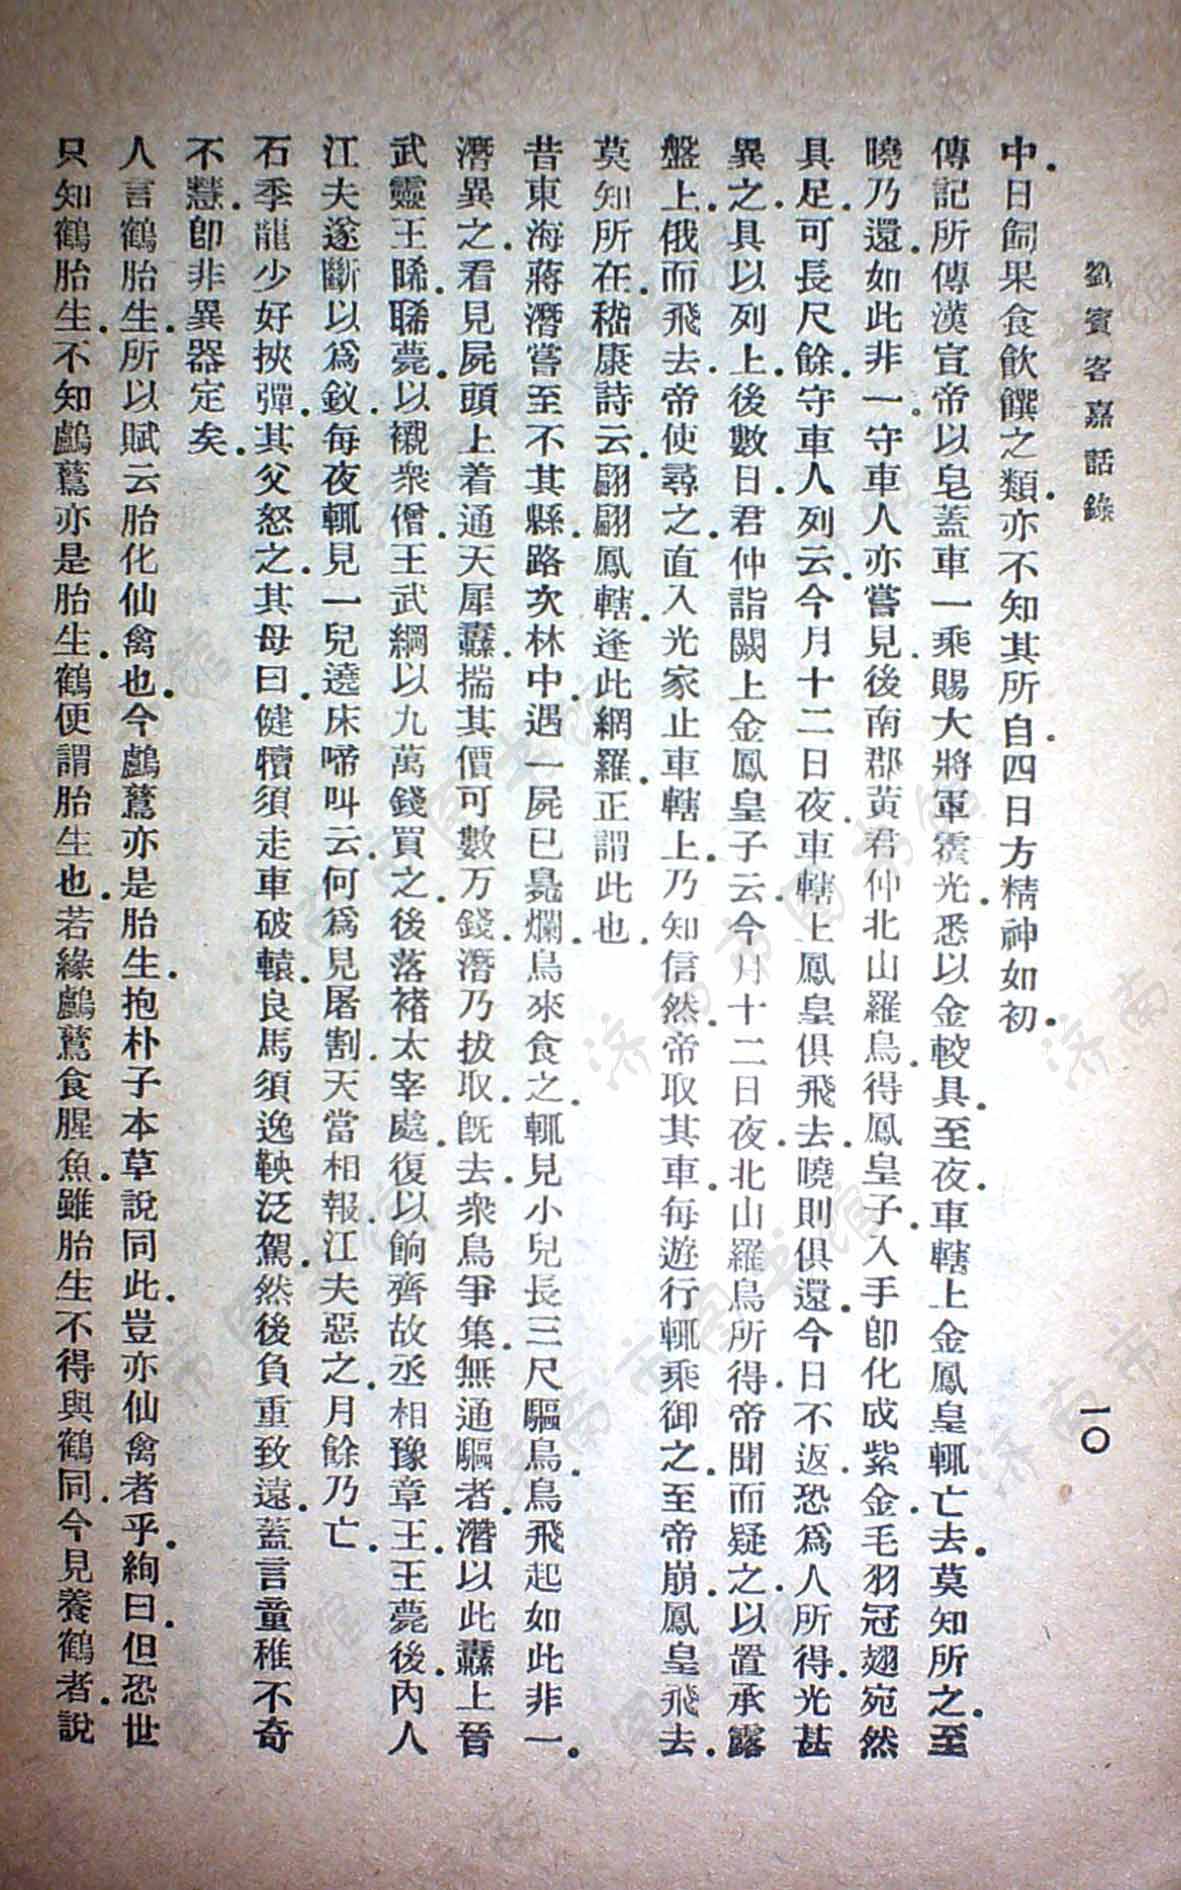 劉賓客嘉話錄
一〇
中.日飼果食飲饌之類.亦不知其所自.四日方精神如初.
傳記所傳漢宣帝以皂蓋車一乘賜大將軍霍光.悉以金鉸具.至夜.車轄上金鳳皇輒亡去.莫知所之.至
曉乃還.如此非一.守車人亦嘗見.後南郡黃君仲北山羅鳥.得鳳皇子.入手卽化成紫金.毛羽冠翅宛然
具足.可長尺餘.守車人列云.今月十二日夜.車轄上鳳皇俱飛去.曉則俱還.今日不返.恐爲人所得.光甚
異之.具以列上.後數日.君仲詣闕上金鳳皇子云.今月十二日夜.北山羅鳥所得.帝聞而疑之.以置承露
盤上.俄而飛去.帝使尋之.直入光家止車轄上.乃知信然.帝取其車.每遊行輒乘御之.至帝崩.鳳皇飛去.
莫知所在.嵇康詩云.翩翩鳳轄.逢此網羅.正謂此也.
昔東海蔣潛嘗至不其縣.路次林中.遇一屍已臭爛.鳥來食之.輒見小兒長三尺驅鳥.鳥飛起.如此非一.
潛異之.看見屍頭上着通天犀纛.揣其價可數万錢.潛乃拔取.旣去.衆鳥爭集.無通驅者.潛以此纛上晉
武靈王晞.晞薨.以襯衆僧.王武綱以九萬錢買之.後落褚太宰處.復以餉齊故丞相豫章王.王薨後.內人
江夫遂斷以爲釵.每夜輒見一兒遶床啼叫云.何爲見屠割.天當相報.江夫惡之.月餘乃亡.
石季龍少好挾彈.其父怒之.其母曰.健犢須走車破轅.良馬須逸鞅泛駕.然後負重致遠.蓋言童稚不奇
不慧.卽非異器定矣.
人言鶴胎生.所以賦云胎化仙禽也.今鸕鶿亦是胎生.抱朴子本草說同此.豈亦仙禽者乎.絢曰.但恐世
只知鶴胎生.不知鸕鶿亦是胎生.鶴便謂胎生也.若緣鸕鶿食腥魚.雖胎生不得與鶴同.今見養鶴者.說